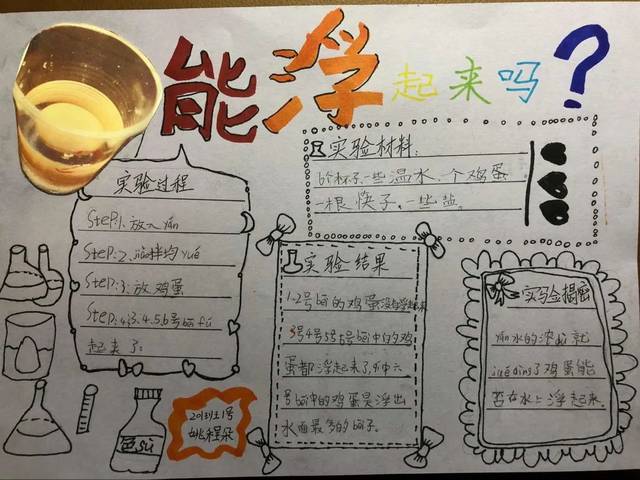 能浮起来吗?
实验材料:
6个杯子、一些温水、一个鸡蛋
一根筷子、一些盐。
实验过程
Step:1.放入yán
Step:2.搅拌均yún
Step:3:放鸡蛋
Step:4:3.4.5.6号
起来了。
实验结果
1.2号的鸡蛋没有浮起来
3号4号5号6号中的鸡
蛋都浮起来了,其中六
号中的鸡蛋是浮出
水面最多的
实验揭密
yán水的浓度就
jué dìng了鸡蛋能
否在水上浮起来.
姚程朵